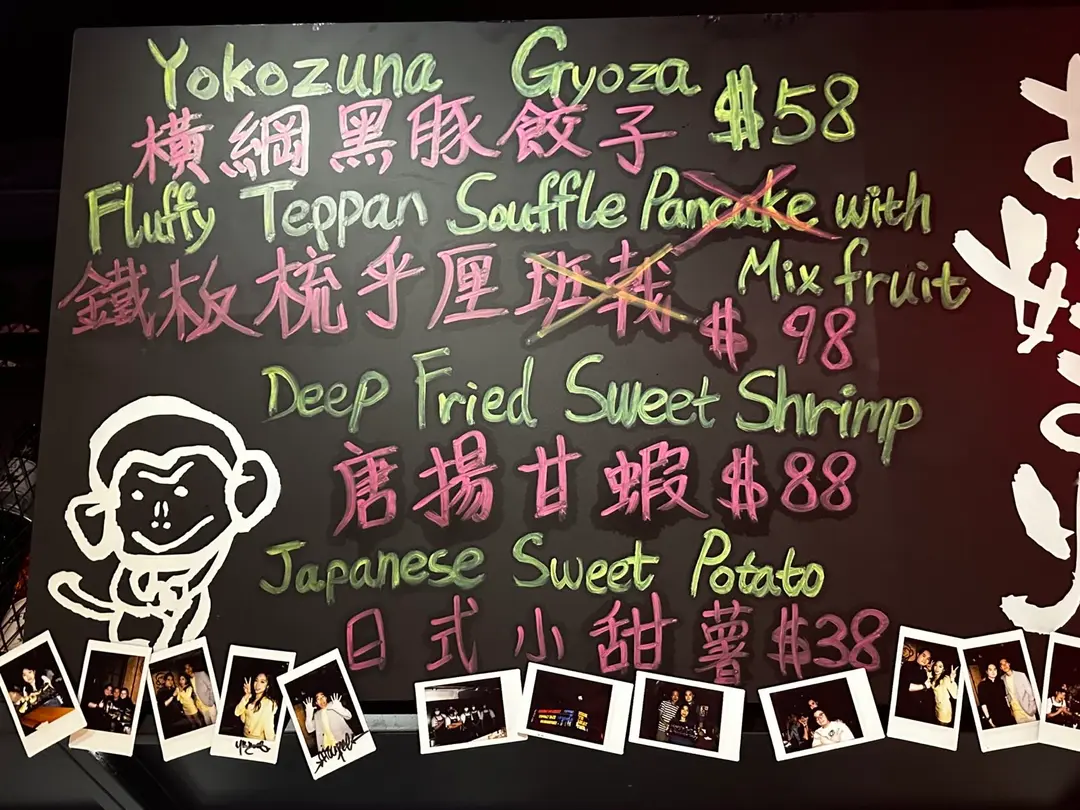 Yokozuna Gyoza $58
橫綱黑豚餃子
Fluffy Teppan Souffle Pancake with
Mix fruit
鐵板梳乎厘班戟
$ 98
Deep Fried Sweet Shrimp
唐揚甘蝦 $88
Japanese Sweet Potato
日式小甜薯 $38